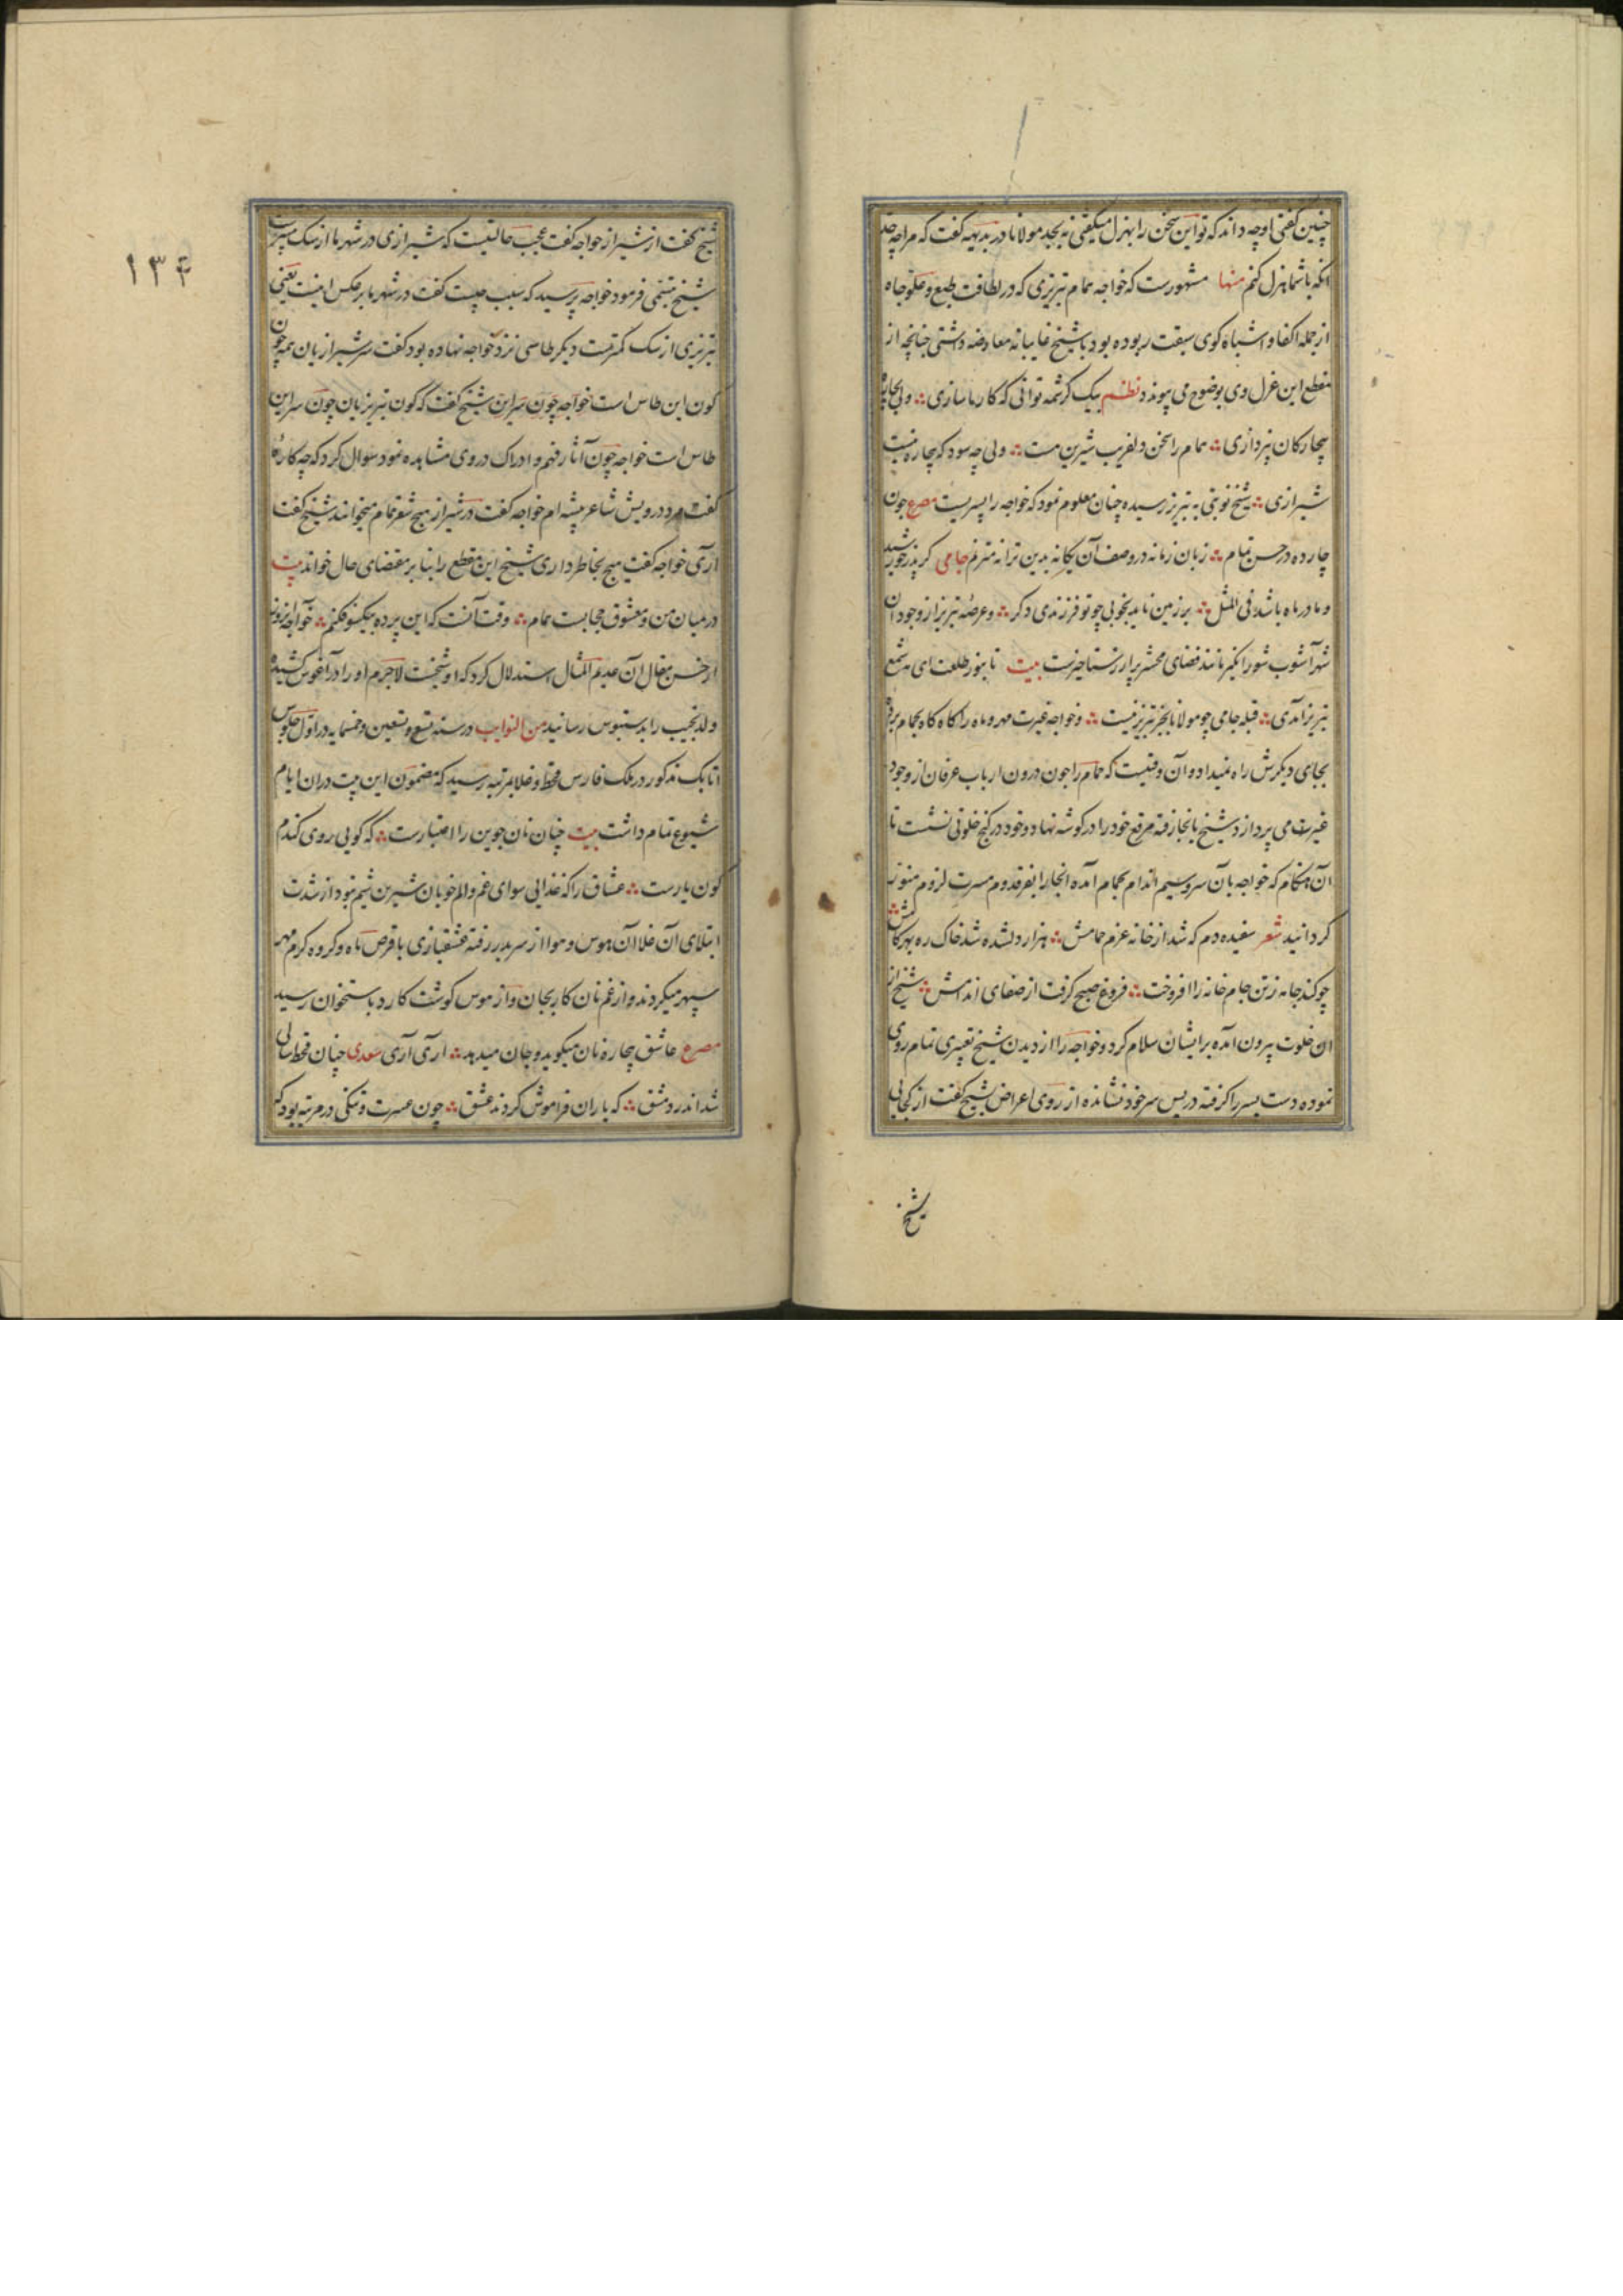 چنین کفتی او چه داند که تو این سخن را بهزل میکفتی نه بجد مولانا در بدیهه کفت که مرا چه حد
انکه با شما هزل کنم منها مشهورست که خواجه همام تبریزی که در لطافت طبع و علو جاه
از جمله اکفا و اشباه کوی سبقت ربوده بود با شیخ غایبانه معارضه داشتی چنانچه از
مقطع این غزل وی بوضوح می پیوندد نظم بیک کرشمه توانی که کار ما سازی ولی بچاره
بیچارکان نپردازی همام را سخن دلفریب شیرین هست ولی چه سود که بیچاره نیست
شیرازی شیخ نوبتی به تبریز رسیده چنان معلوم نمود که خواجه را پسریست مصرع چون
چارده در حسن تمام زبان زمانه در وصف آن یکانه بدین ترانه مترنم جامی کر پدر خورشید
و مادر ماه باشد فی المثل بر زمین ناید بخوبی چو تو فرزندی دکر و عرصهٔ تبریز از وجود آن
شهرآشوب شورانکیز مانند فضای محشر پر از رستاخیزست بیت تا بنور طلعت ای شمع
تبریز آمدی قبله جامی چو مولانا بجز تبریز نیست و خواجه غیرت مهر و ماه را کاه کاه بحمام برده
بجای دیکرش راه نمیداد و آن وقتیست که حمام را چون درون ارباب عرفان از وجود
غیرت می پردازد شیخ بانجا رفته مرقع خود را در کوشه نهاد و خود در کنج خلوتی نشست تا
آن هنکام که خواجه بآن سرو سیم اندام بحمام آمده انجا را بفر قدوم مسرت لزوم منور
کردانید شعر سفیده دم که شد از خانه عزم حمامش هزار دلشده شد خاک ره بهر کامش
چو کند جامه ز تن جام خانه را افروخت فروغ صبح کرفت از صفای اندامش شیخ از
آن خلوت بیرون آمده بر ایشان سلام کرد و خواجه را از دیدن شیخ تغییری تمام روی
نموده دست پسر را کرفته در پس سر خود نشانده از روی اعراض بشیخ کفت از کجایی
شیخ
۱۳۴
شیخ کفت از شیراز خواجه کفت عجب حالتیست که شیرازی در شهر ما از سک بیشترست
شیخ تبسمی فرمود خواجه پرسید که سبب چیست کفت در شهر ما برعکس اینست یعنی
تبریزی از سک کمترست دیکر طاسی نزد خواجه نهاده بود کفت سر شیرازیان همه چون
کون این طاس است خواجه چون سر این شیخ کفت که کون تبریزیان چون سر این
طاس است خواجه چون آثار فهم و ادراک در وی مشاهده نمود سوال کرد که چه کارهٔ
کفت مرد درویش شاعر پیشه ام خواجه کفت در شیراز هیچ شعر همام میخوانند شیخ کفت
آری خواجه کفت هیچ بخاطر داری شیخ این مقطع را بنا بر مقتضای حال خواند بیت
در میان من و معشوق حجابست همام وقت آنست که این پرده بیکسو فکنم خواجه
از حسن مقال آن عدیم المثال استدلال کرد که او شیخست لاجرم او را در آغوش کشیده
ولد نجیب را بدستبوس رسانید من النوایب در سنه تسع و تسعین و خمسمایه در اول جلوس
اتابک مذکور در ملک فارس قحط و غلا بمرتبه رسید که مضمون این بیت در آن ایام
شیوع تمام داشت بیت چنان نان جوین را اعتبارست که کویی روی کندم
کون یارست عشاق را که غذایی سوای غم و الم خوبان شیرین شیم نبود از شدت
ابتلای آن غلا آن هوس و هوا از سر بدر رفته عشقبازی با قرص ماه و کروه کرم مهر
سپهر میکردند و از غم نان کار بجان و از هوس کوشت کارد باستخوان رسید
مصرع عاشق بیچاره نان میکوید و جان میدهد آری آری سعدی چنان قحط سالی
شد اندر دمشق که یاران فراموش کردند عشق چون عسرت و تنکی در مرتبه بود که